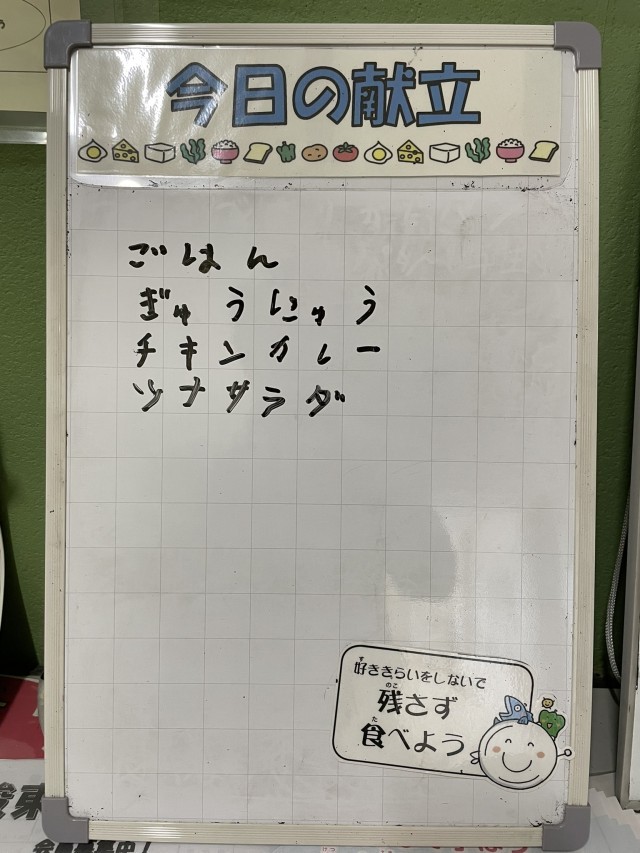 今日の献立
ごはん
ぎゅうにゅう
チキンカレー
ツナサラダ
好ききらいをしないで
残さず
食べよう